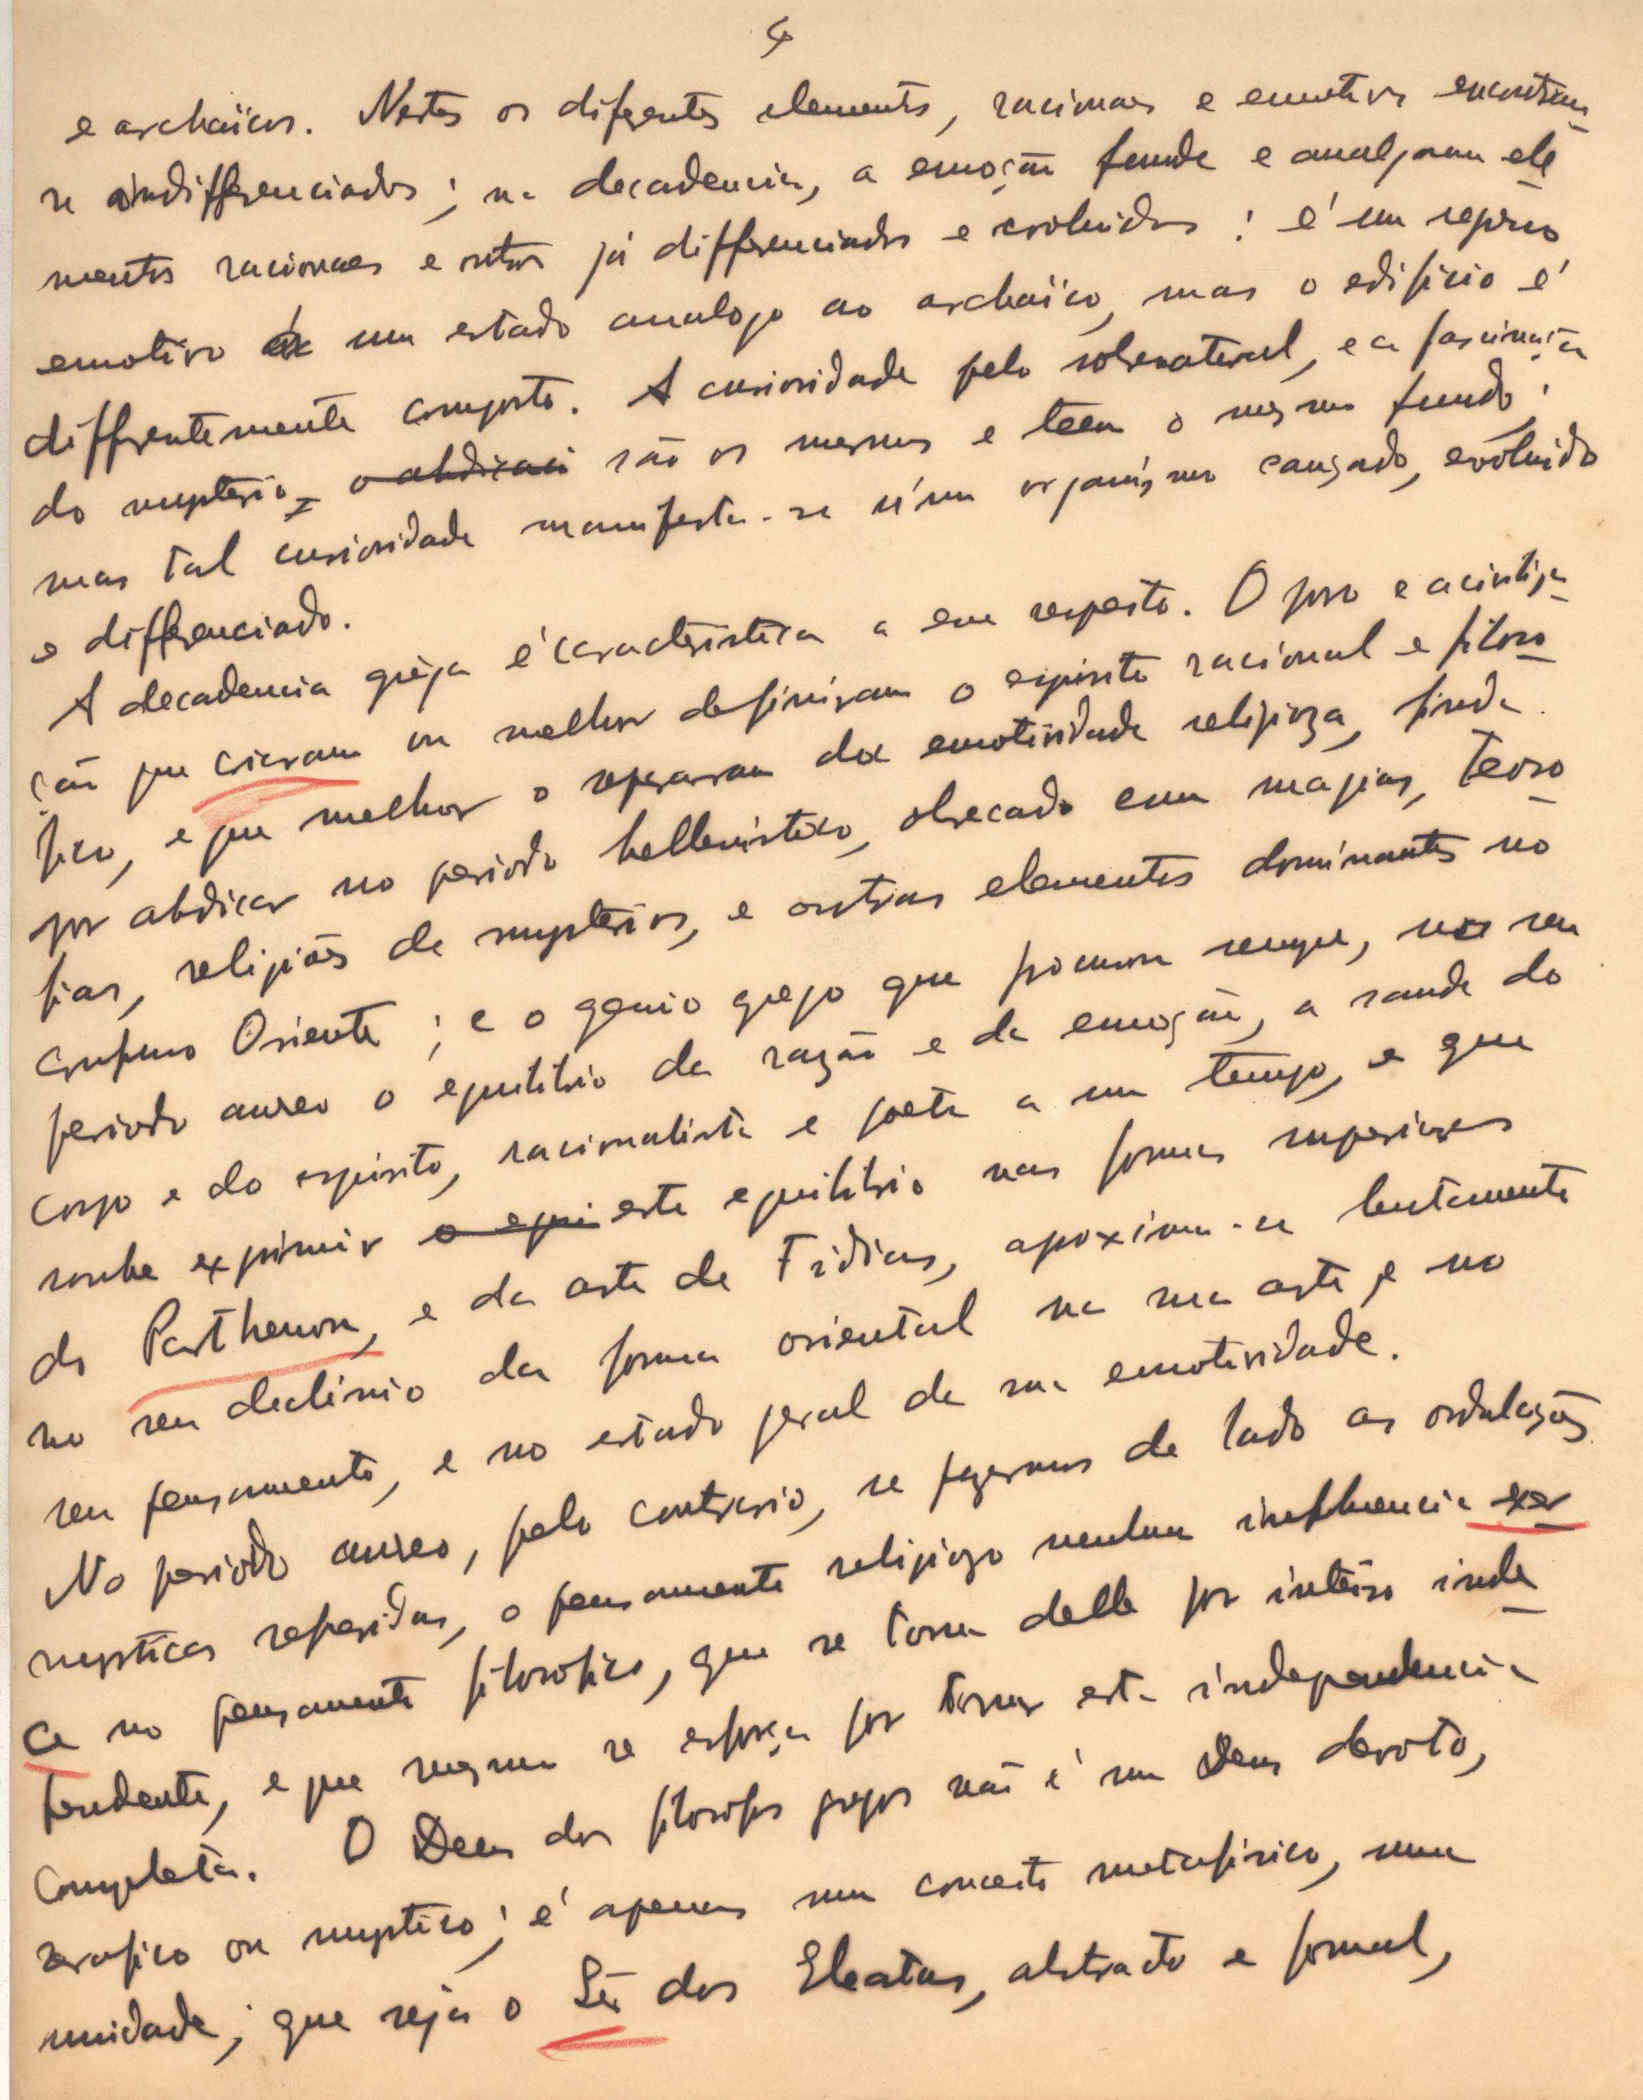 4
e archaïcos. Nestes os diferentes elementos, racionaes e emotivos encontram
se indifferenciados; na decadencia, a emoção funde e amalgama ele
mentos racionaes e outros já differenciados e evoluidos: é um regresso
emotivo a um estado analogo ao archaïco, mas o edificio é
differentemente composto. A curiosidade pelo sobrenatural, e a fascinação
do mysterio, são os mesmos e teem o mesmo fundo;
mas tal curiosidade manifesta-se n'um organismo cançado, evoluido
e differenciado.
A decadencia grega é caracteristica a esse respeito. O povo e a civiliza
ção que crearam ou melhor definiram o espirito racional e filoso
fico, e que melhor o separaram da emotividade religioza, finda
por abdicar no periodo hellenistico, obsecado com magias, teoso
fias, religiões de mysterios, e outros elementos dominantes no
confuso Oriente; e o genio grego que procurou sempre, no seu
periodo aureo o equilibrio da razão e da emoção, a saude do
corpo e do espirito, racionalista e poeta a um tempo, e que
soube exprimir este equilibrio nas formas superiores
do Parthenon, e da arte de Fidias, aproxima-se lentamente
no seu declinio da forma oriental na sua arte, e no
seu pensamento, e no estado geral da sua emotividade.
No periodo aureo, pelo contrario, se fizermos de lado as ondulações
mysticas referidas, o pensamento religiozo nenhuma influencia exer
ce no pensamento filosofico, que se torna delle por inteiro inde
pendente, e que mesmo se esforça por tornar esta independencia
completa. O Deus dos filosofos gregos não é um Deus devoto,
serafico ou mystico; é apenas um conceito metafisico, uma
unidade; que seja o Sêr dos Eleatas, abstracto e formal,